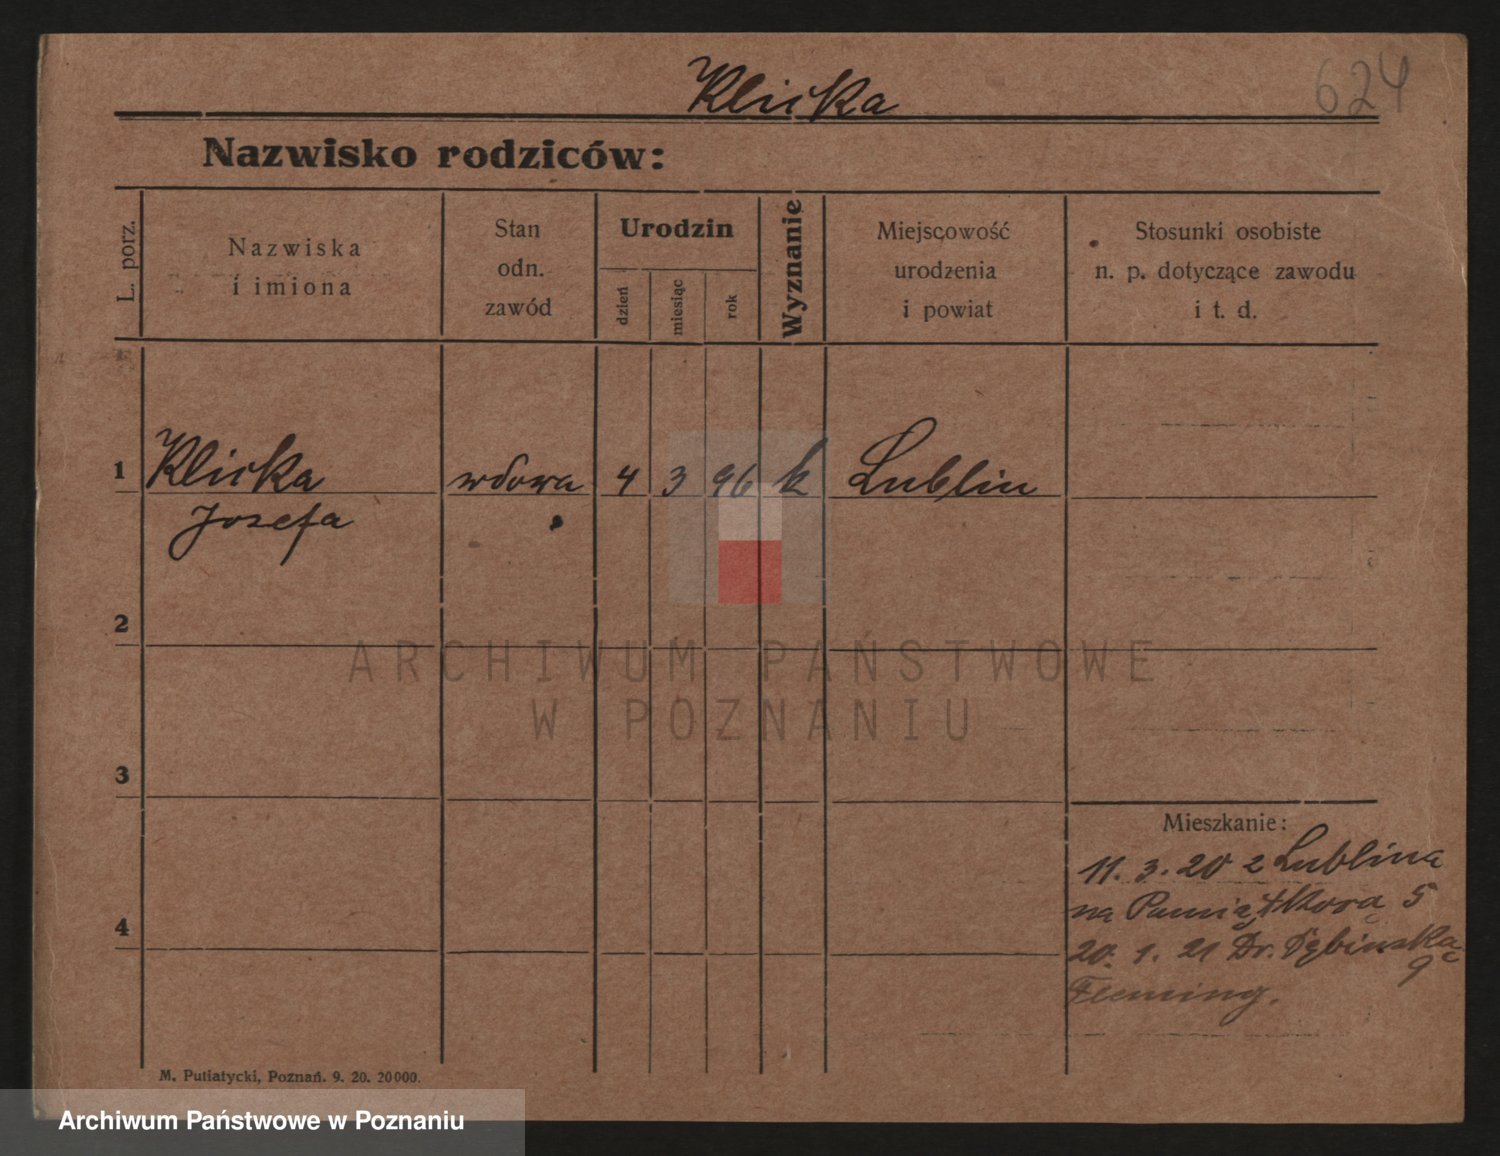 Klicka
624
Nazwisko rodziców:
L. porz.
Nazwiska
i imiona
Stan
odn.
zawód
Urodzin
dzień
miesiąc
rok
Wyznanie
Miejscowość
urodzenia
i powiat
Stosunki osobiste
n. p. dotyczące zawodu
i t. d.
1
Klicka
Josefa
wdowa
4
3
96
k
Lublin
2
ARCHIWUM PAŃSTWOWE
W POZNANIU
3
Mieszkanie:
11. 3. 20 z Lublina
na Pamiątkową 5
4
20. 1. 21 Dr. Dębinska
9
Fleming.
M. Putiatycki, Poznań. 9. 20. 20000.
Archiwum Państwowe w Poznaniu